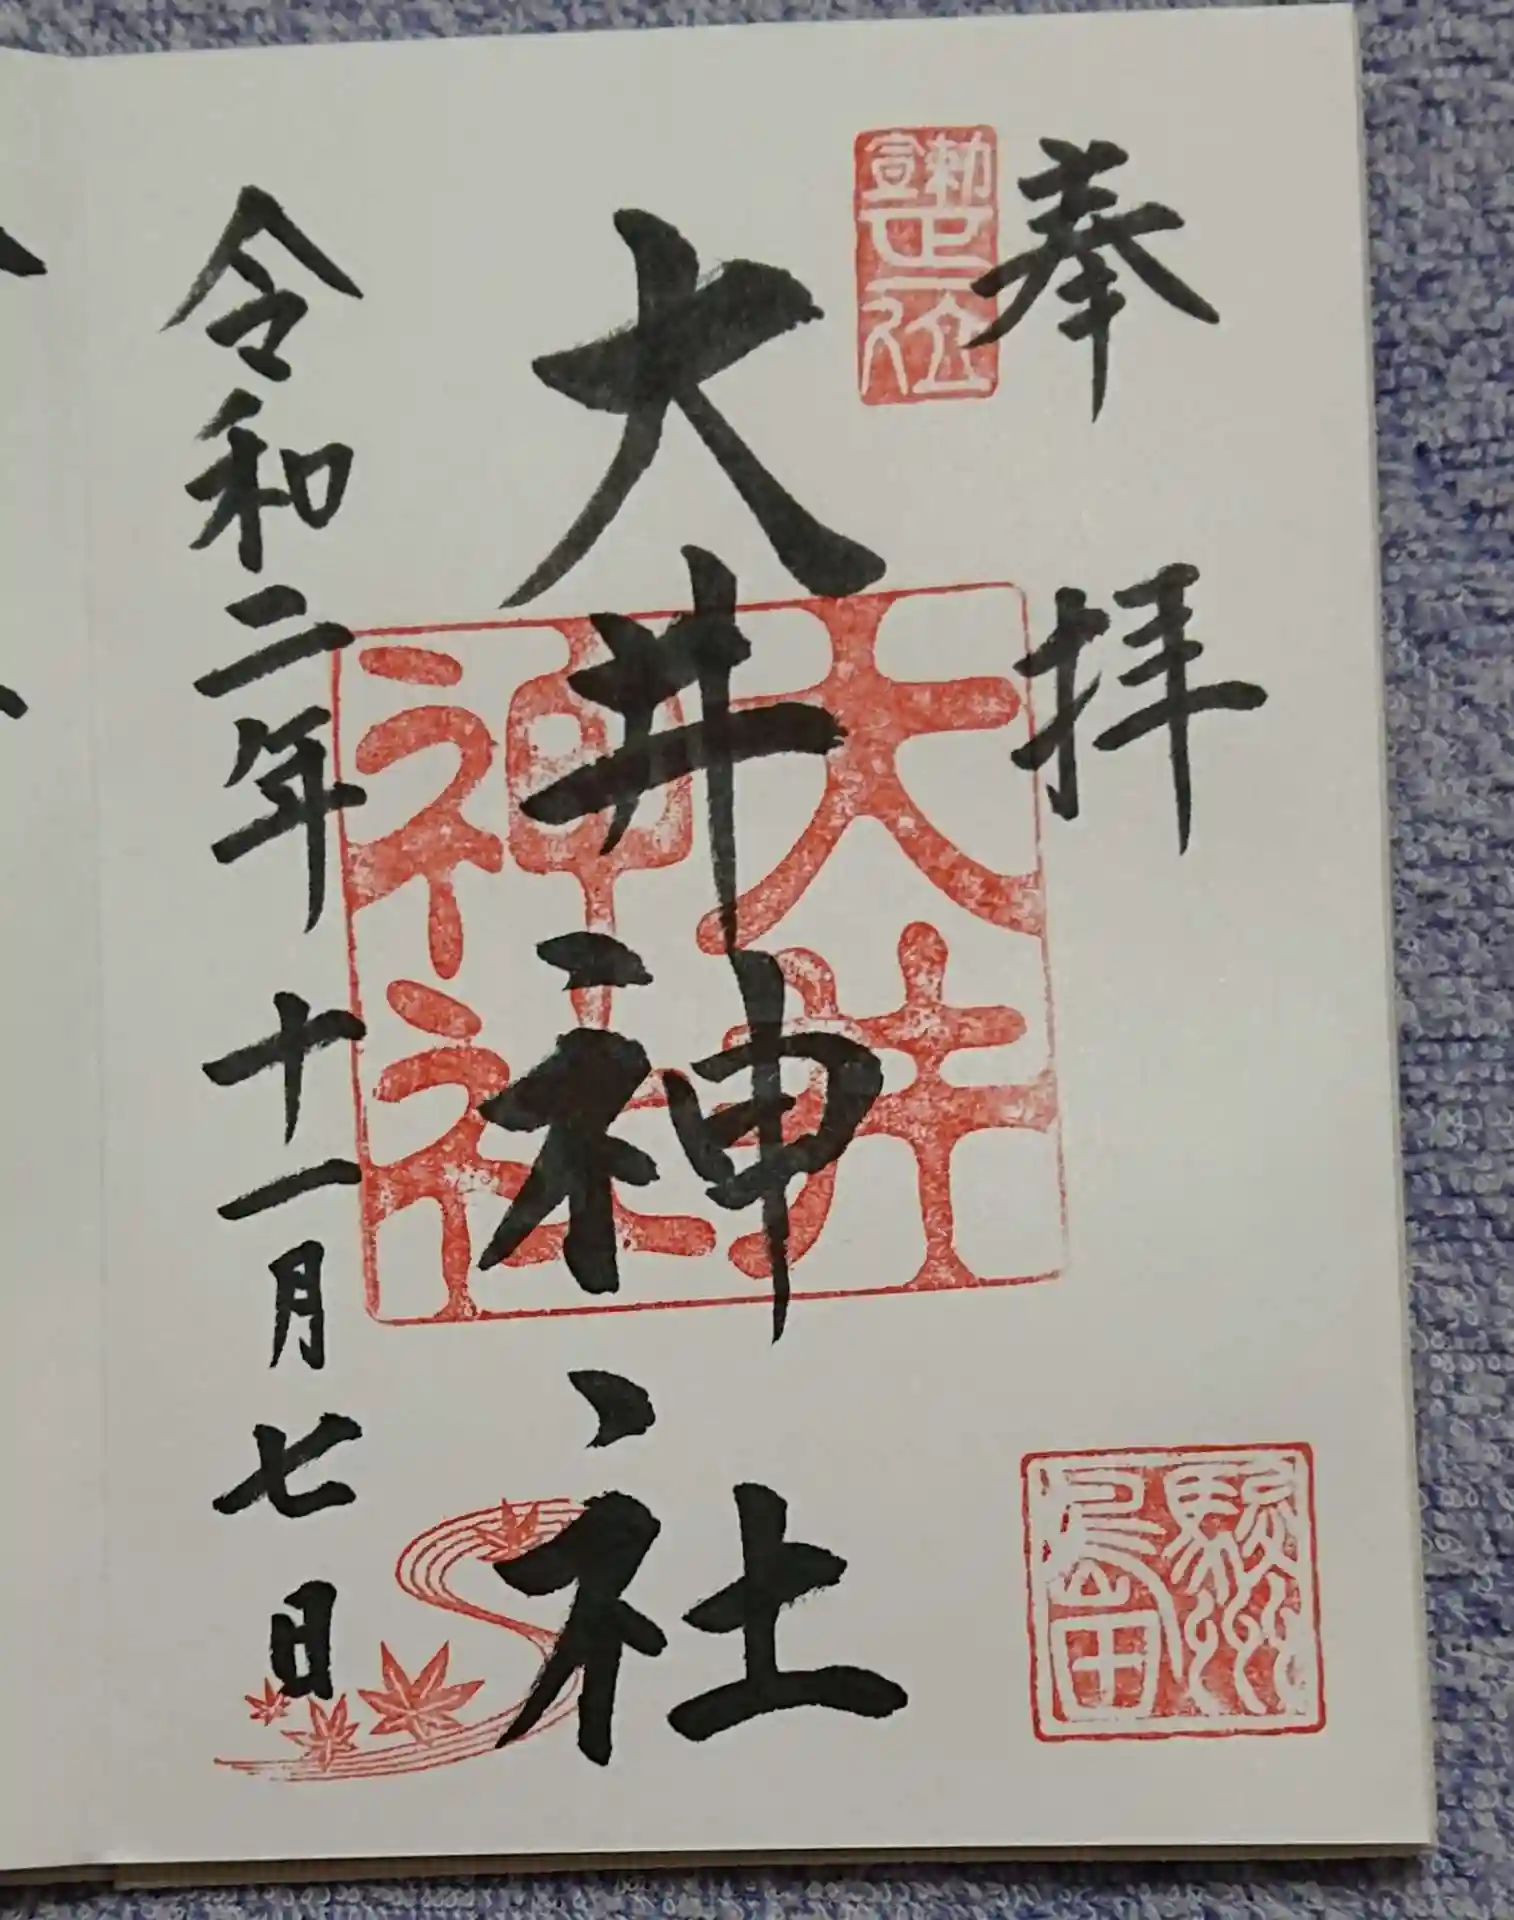 奉拝
勅宣正一位
駿州島田
大井神社
大井神社
令和二年十一月七日